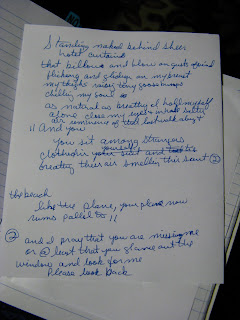 Standing naked behind sheer
hotel curtains
that billow and blow on gusts of wind
flicking and gliding on my breast
my thighs raises tiny goose bumps
chilling my soul
as natural as breathing of half myself
alone close my eyes & inhale salty
air reminding of that last walk along
11 And you
you sit among strangers
yourself
breathing their air smelling this scent 2
the beach
like the plane, your plane now
runs parallel to 11
2 and I pray that you are missing me
or @ least that you glance out the
window and look for me
Please look back